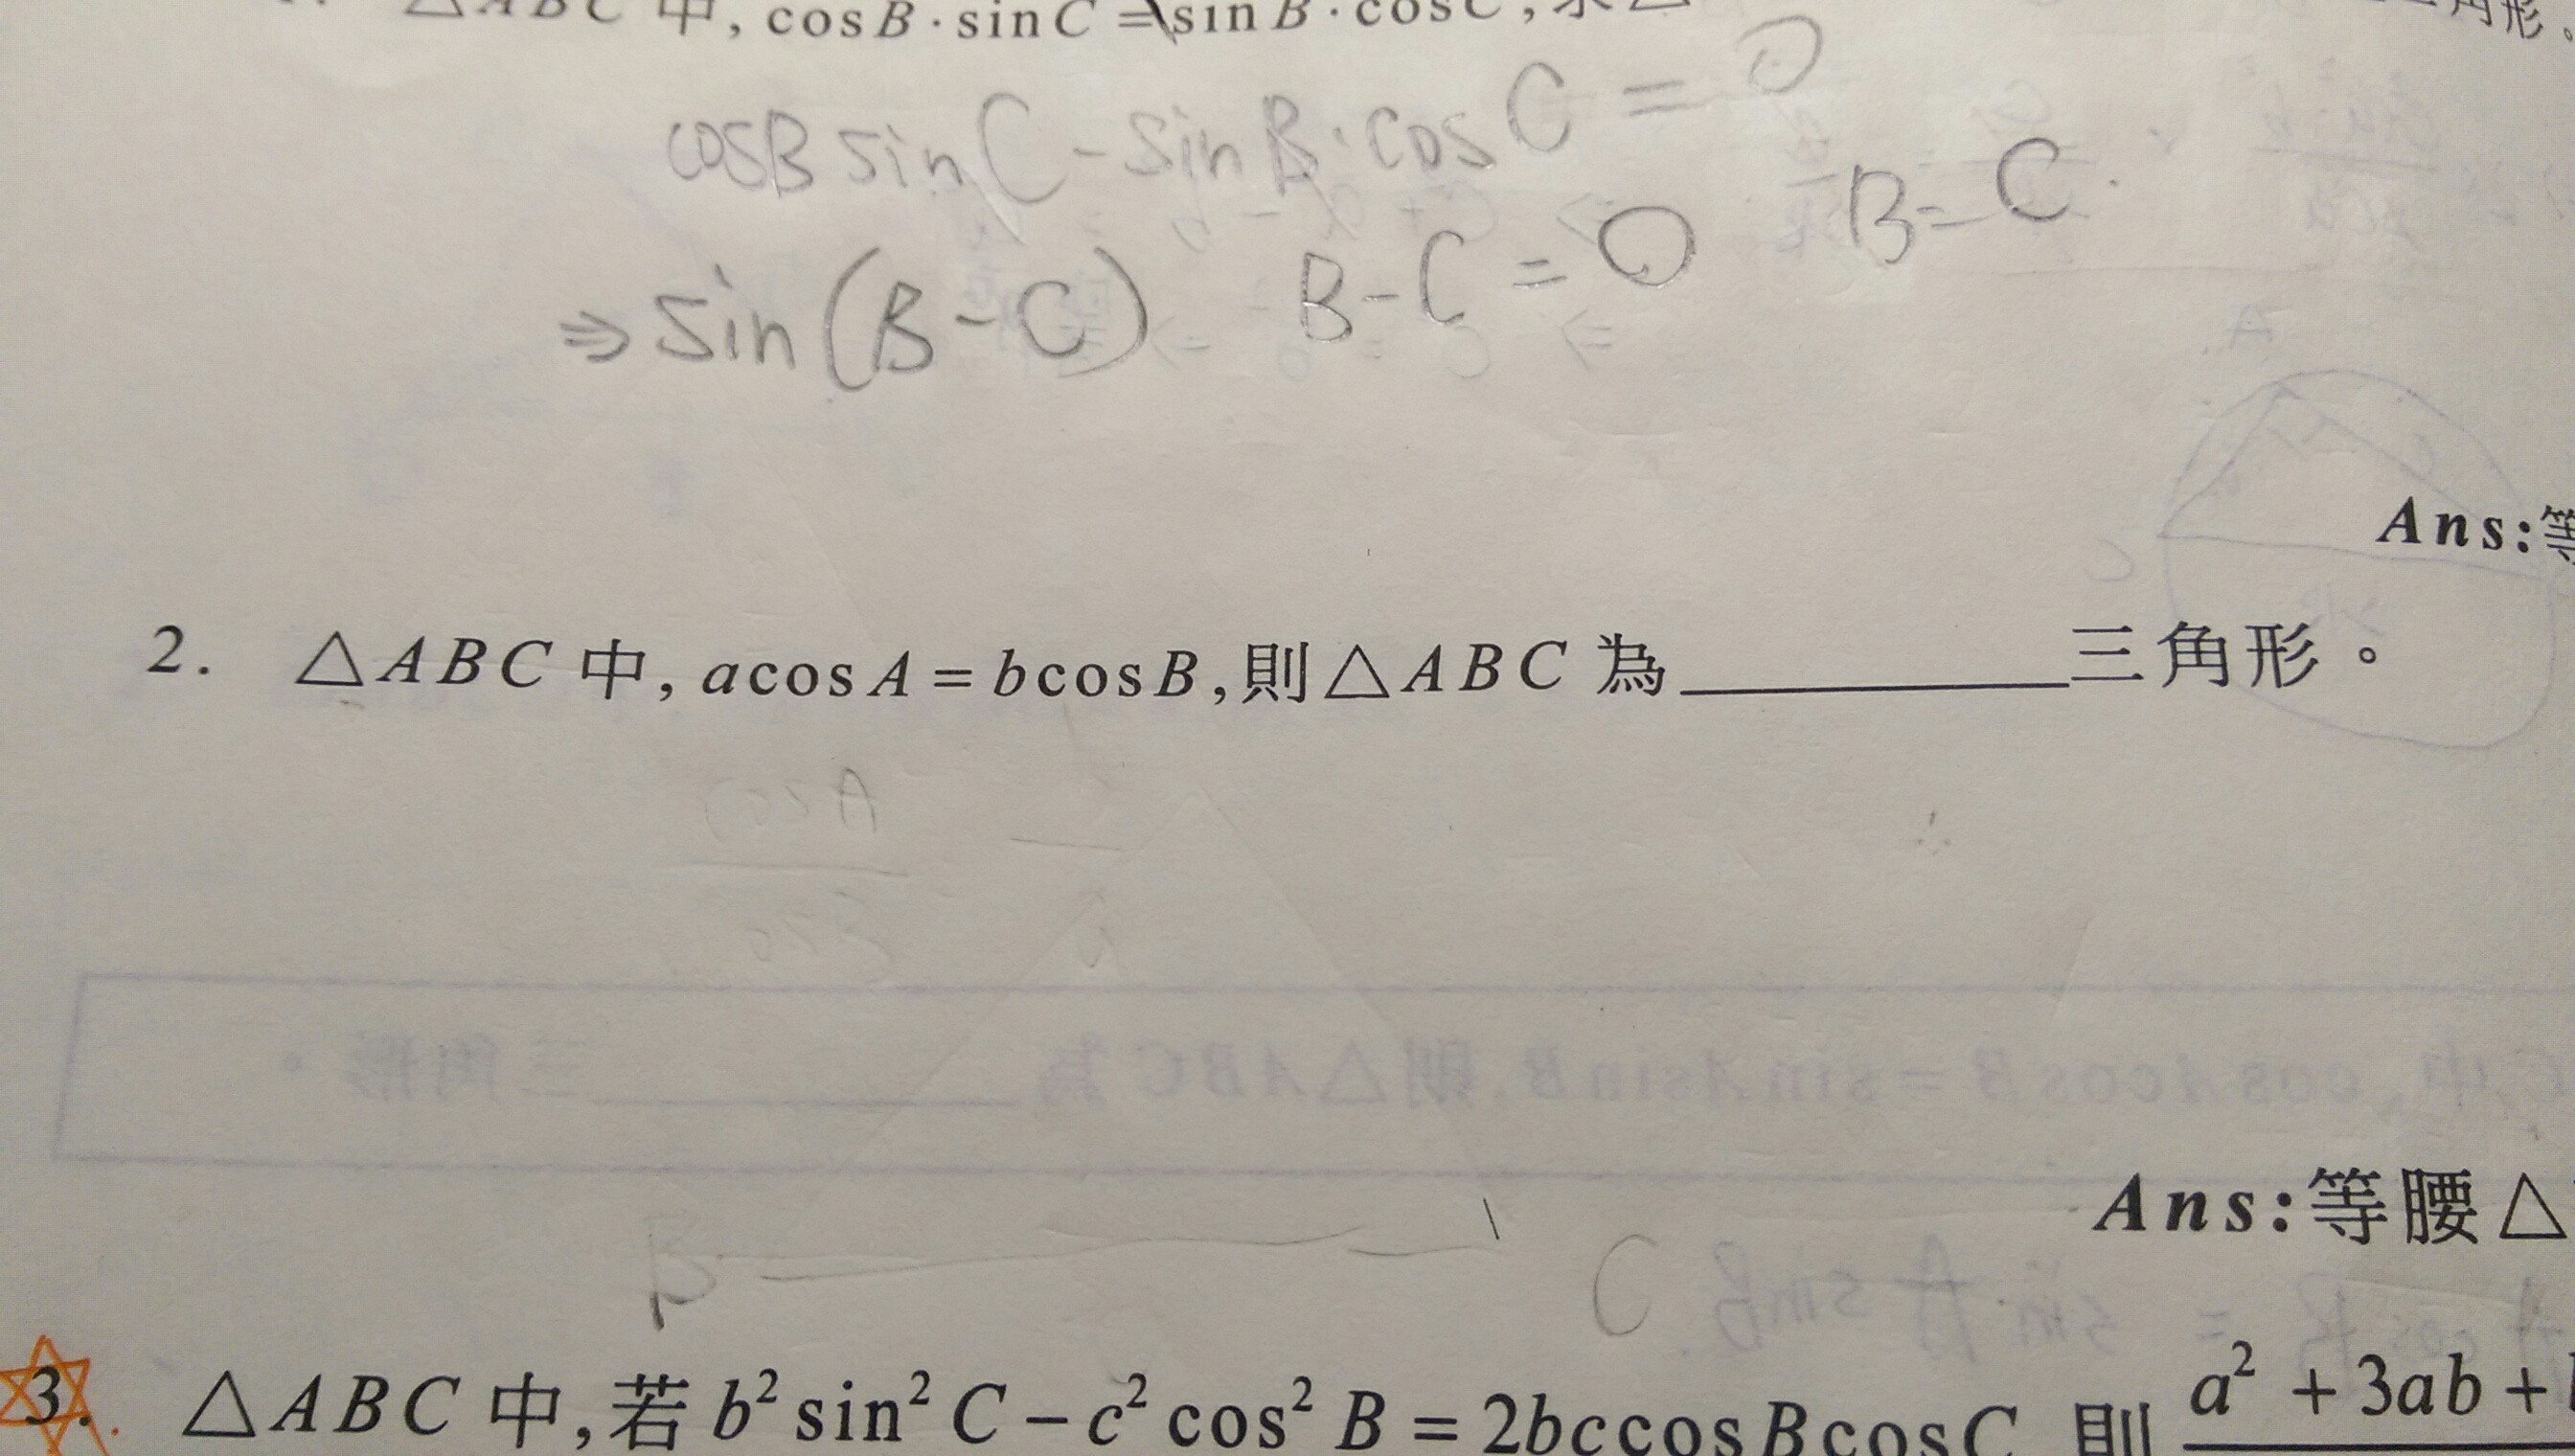 △ABC 中, cosB·sinC = sinB·cosC, 求△
三角形。
cosB sinC - sinB·cosC = 0
⇒ sin(B-C) B-C=0 B=C.
Ans:等
2. △ABC 中, acosA = bcosB, 則△ABC 為__________三角形。
cosA
Ans:等腰△
B C
3. △ABC 中, 若 b² sin² C - c² cos² B = 2bccosBcosC 則 a² + 3ab +